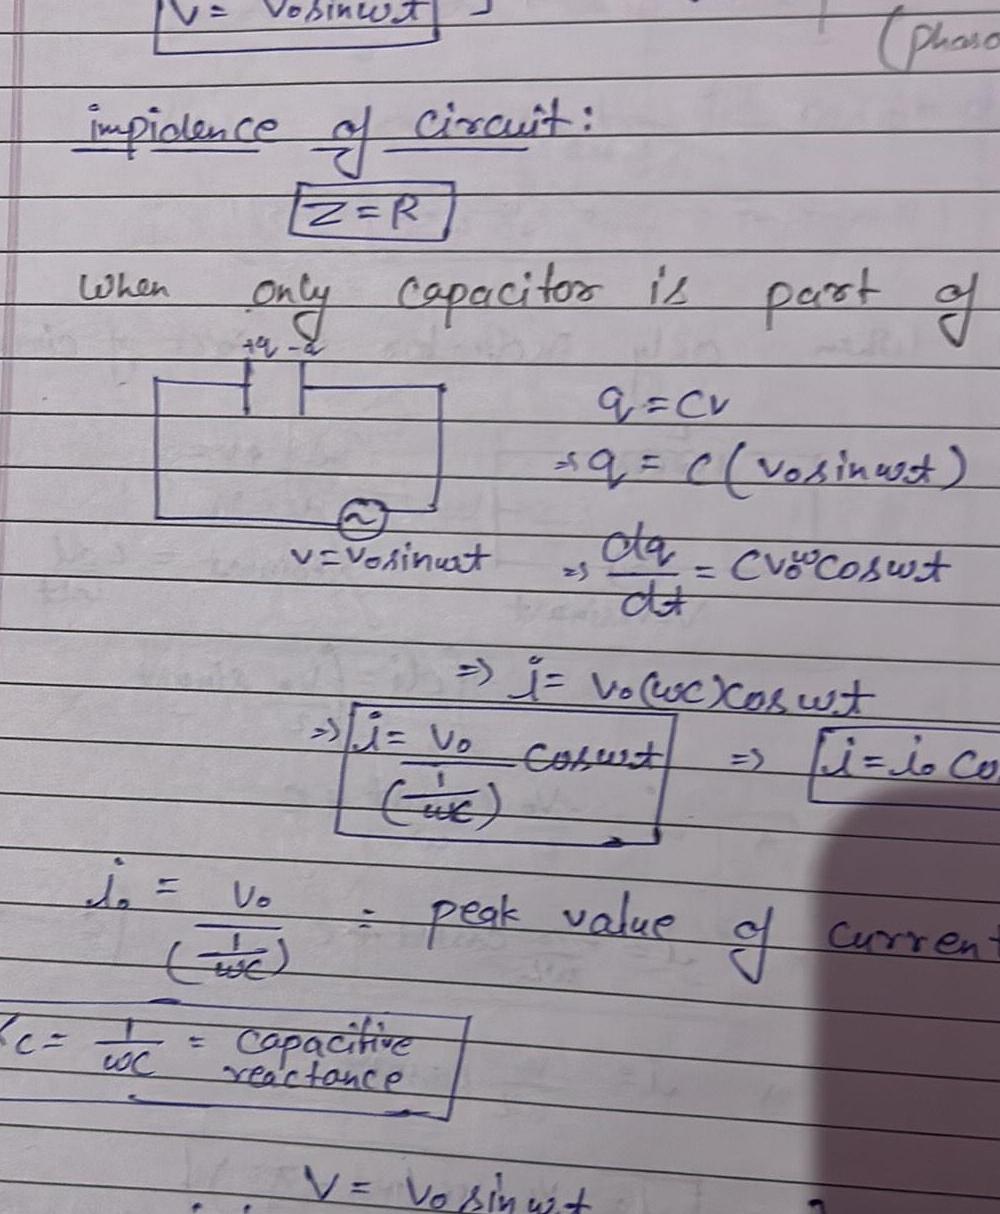 V = Vosinwt
(phaso
impidence of circuit:
Z = R
When only capacitor is part of
+q -q
q = CV
⇒ q = C (Vosinwt)
V = Vosinwt
⇒ dq/dt = CVowcoswt
⇒ i = Vo(wc)coswt
⇒ i = Vo/(1/wc) coswt ⇒ i = io co
io = Vo/(1/wc) = peak value of current
Xc = 1/wc = capacitive
reactance
V = Vo sinwt